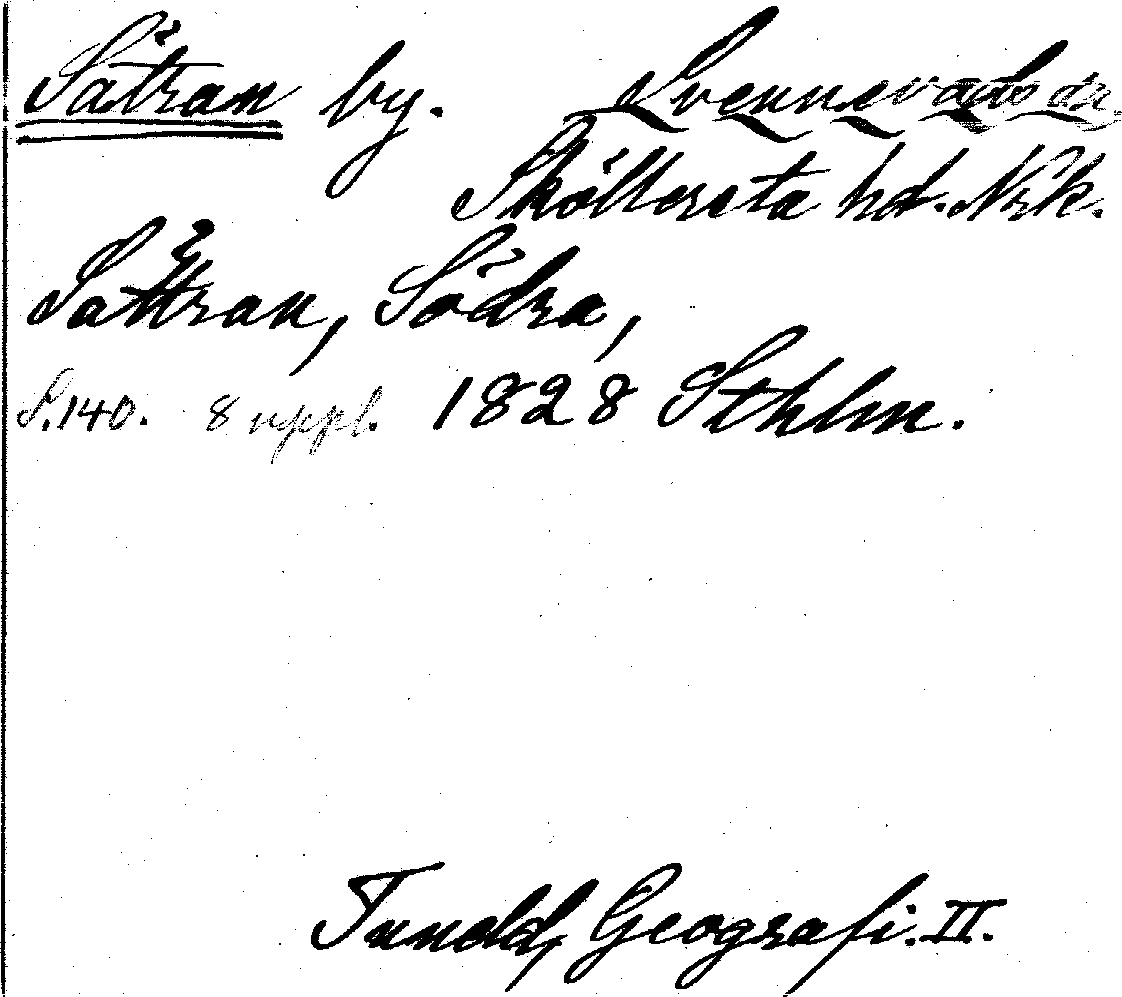 Sätran by. Svennevads sn.
Sköllersta hd. Nrk.
Sättran, Södra,
S. 140. 8 uppl. 1828 Sthlm.
Tuneld, Geografi. II.